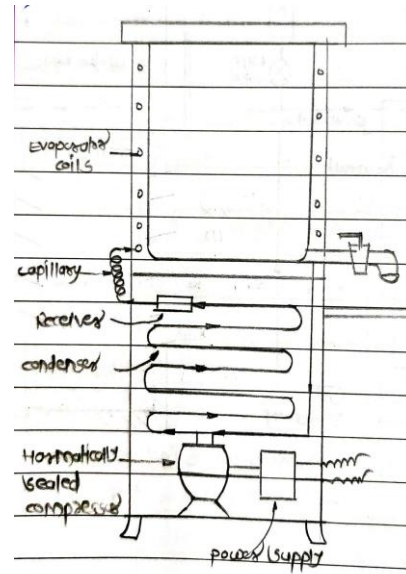 Evaporator
coils
capillary
Receiver
condenser
Harmatically
sealed
compressor
power supply